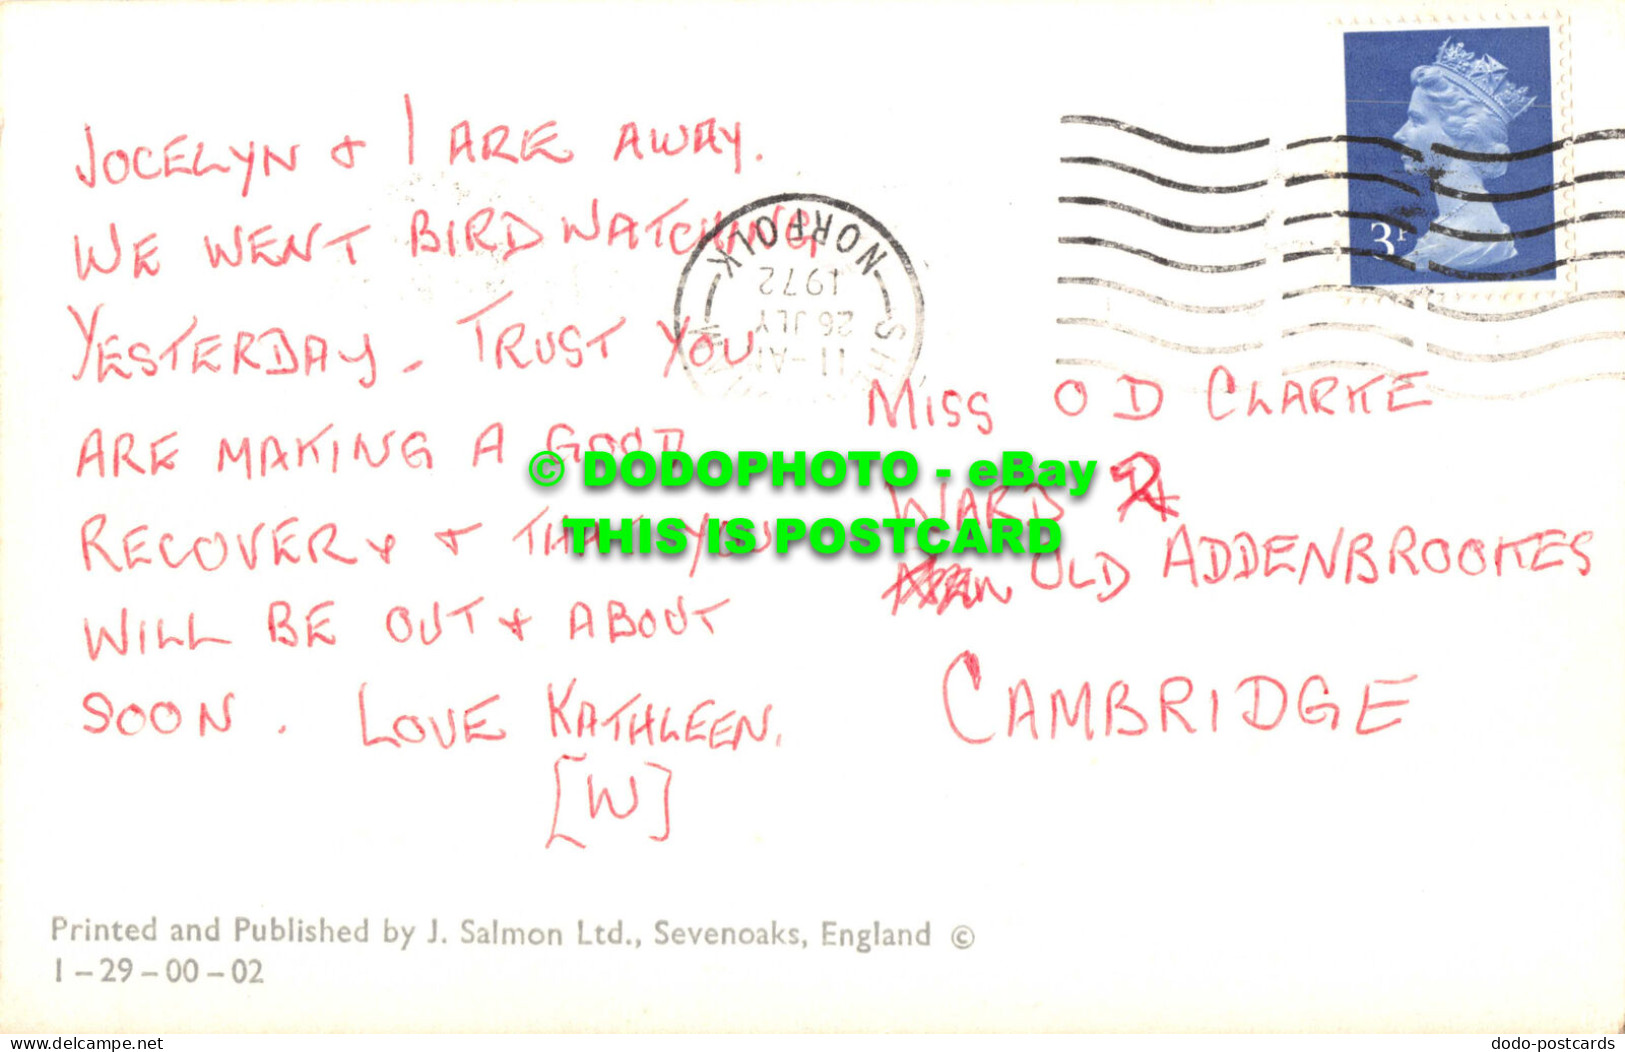 JOCELYN & I ARE AWAY.
WE WENT BIRD WATCHING
YESTERDAY - TRUST YOU
ARE MAKING A GOOD
RECOVERY & THAT YOU
WILL BE OUT & ABOUT
SOON. LOVE KATHLEEN.
[W]
NORFOLK
1972
26 JLY
11-AM
3P
MISS O D CLARKE
WARD
OLD ADDENBROOKES
CAMBRIDGE
© DODOPHOTO - eBay
THIS IS POSTCARD
Printed and Published by J. Salmon Ltd., Sevenoaks, England ©
1-29-00-02
www.delcampe.net
dodo-postcards